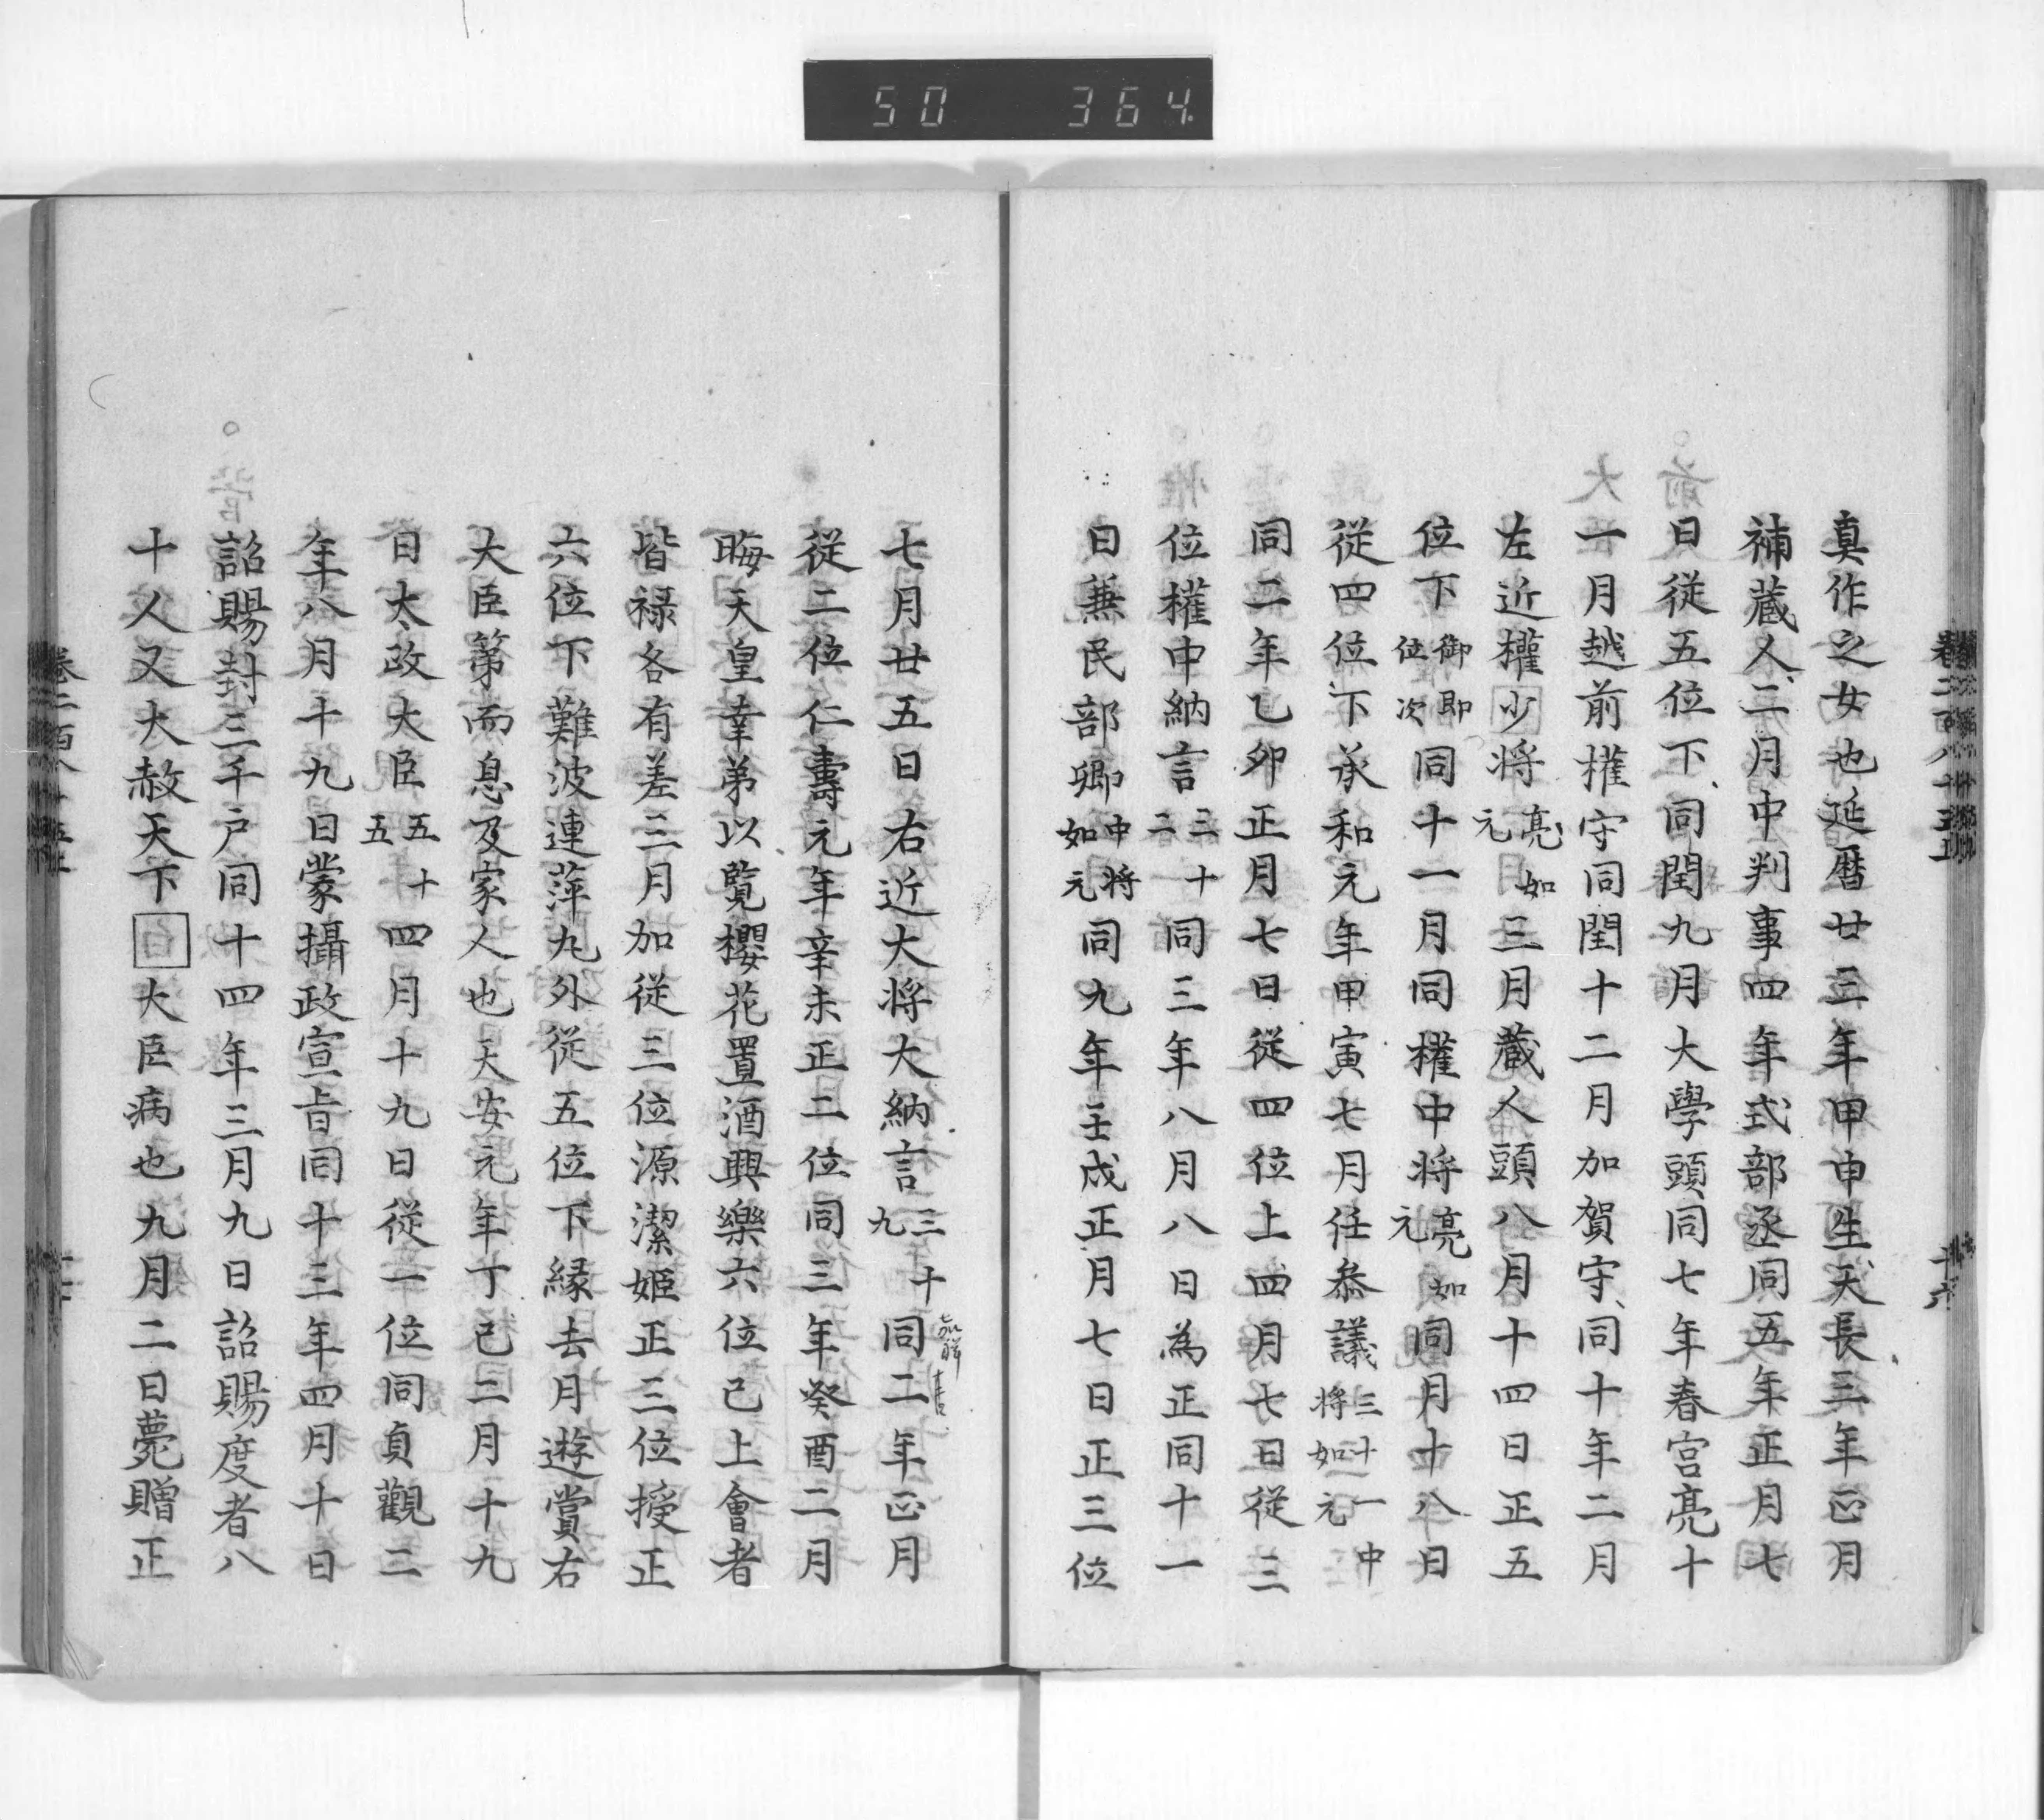 50 364
真作之女也延暦廿三年甲申生天長三年正月
補蔵人二月中判事四年式部丞同五年正月七
日従五位下同閏九月大學頭同七年春宮亮十
一月越前權守同閏十二月加賀守同十年二月
左近權少将亮如元三月蔵人頭八月十四日正五
位下御即位次同十一月同權中将亮如元同月十八日
従四位下承和元年甲寅七月任叅議三十一中将如元
同二年乙卯正月七日従四位上四月七日従三
位權中納言三十二同三年八月八日為正同十一
日兼民部卿中将如元同九年壬戌正月七日正三位
七月廿五日右近大将大納言三十九同二年正月
従二位仁壽元年辛未正二位同三年癸酉二月
晦天皇幸弟以覧櫻花置酒興樂六位已上會者
皆禄各有差三月加従三位源潔姫正三位授正
六位下難波連萍九外従五位下縁去月遊賞右
大臣第而息及家人也天安元年丁已二月十九
日太政大臣五十五四月十九日従一位同貞觀二
年八月十九日蒙攝政宣旨同十三年四月十日
詔賜封三千戸同十四年三月九日詔賜度者八
十人又大赦天下白大臣病也九月二日薨贈正